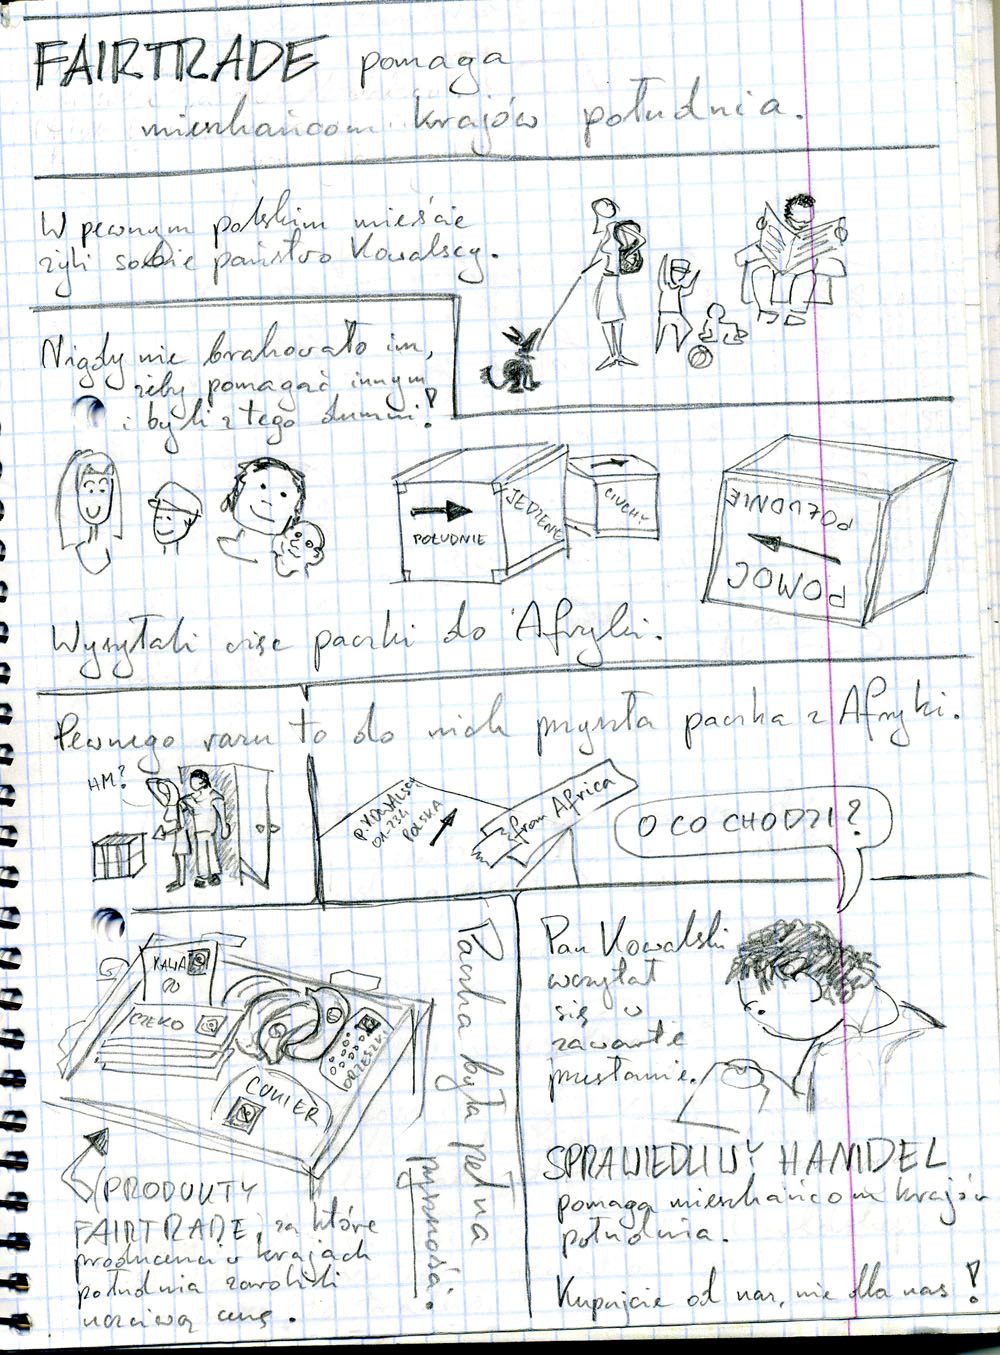 FAIRTRADE pomaga
mieszkańcom krajów południa.
W pewnym polskim mieście
żyli sobie państwo Kowalscy.
Nigdy nie brakowało im,
żeby pomagać innym
i byli z tego dumni!
POŁUDNIE
JEDZENIE
CIUCHY
POMOC
POŁUDNIE
Wysyłali więc paczki do Afryki.
Pewnego razu to do nich przyszła paczka z Afryki.
HM?
P. KOWALSCY
POLSKA
from Africa
O CO CHODZI?
KAWA
CZEKO
ORZESZKI
CUKIER
Paczka była pełna
pyszności.
PRODUKTY
FAIRTRADE, za które
producenci w krajach
południa zarobili
uczciwą cenę.
Pan Kowalski
wczytał
się w
zawarte
przesłanie.
SPRAWIEDLIWY HANDEL
pomaga mieszkańcom krajów
południa.
Kupujcie od nas, nie dla nas!